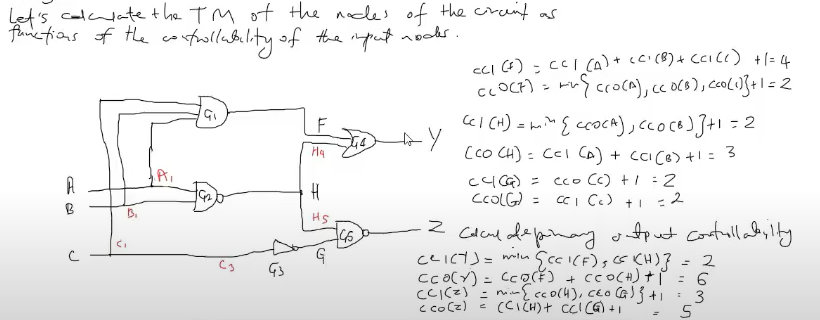 Let's calculate the TM of the nodes of the circuit as
functions of the controllability of the input nodes.
CC1(F) = CC1(A) + CC1(B) + CC1(C) +1 = 4
CC0(F) = min{CC0(A), CC0(B), CC0(C)}+1 = 2
CC1(H) = min{CC0(A), CC0(B)}+1 = 2
CC0(H) = CC1(A) + CC1(B) +1 = 3
CC1(G) = CC0(C) +1 = 2
CC0(G) = CC1(C) +1 = 2
G1
F
G4
Y
H4
A
A1
G2
H
B
B1
H5
G5
Z
C
C1
C3
G3
G
output controllability
CC1(Y) = min{CC1(F), CC1(H)} = 2
CC0(Y) = CC0(F) + CC0(H) +1 = 6
CC1(Z) = min{CC0(H), CC0(G)}+1 = 3
CC0(Z) = CC1(H) + CC1(G) +1 = 5